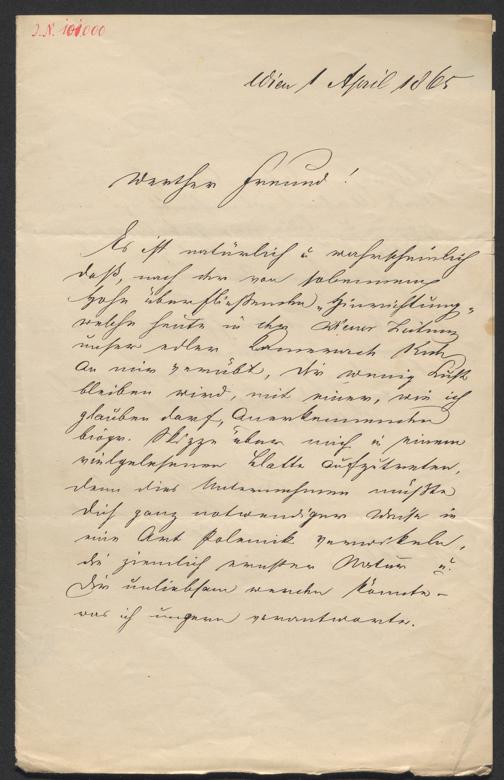 J.N. 101000
Wien 1 April 1865
Werther Freund!
Es ist natürlich u wahrscheinlich
daß, nach der von
Hohn überfließenden „Hinrichtung"
welche heute in der Wiener Zeitung
unser edler Kuh
an mir verübt, Dir wenig Lust
bleiben wird, mit einer, wie ich
glauben darf, anerkennenden
biogr. Skizze über mich in einem
vielgelesenen Blatte aufzutreten,
denn dies Unternehmen müßte
Dich ganz notwendiger Weise in
eine Art Polemik verwickeln,
die ziemlich ernster Natur u.
Dir unliebsam werden könnte –
was ich ungern verantworte.